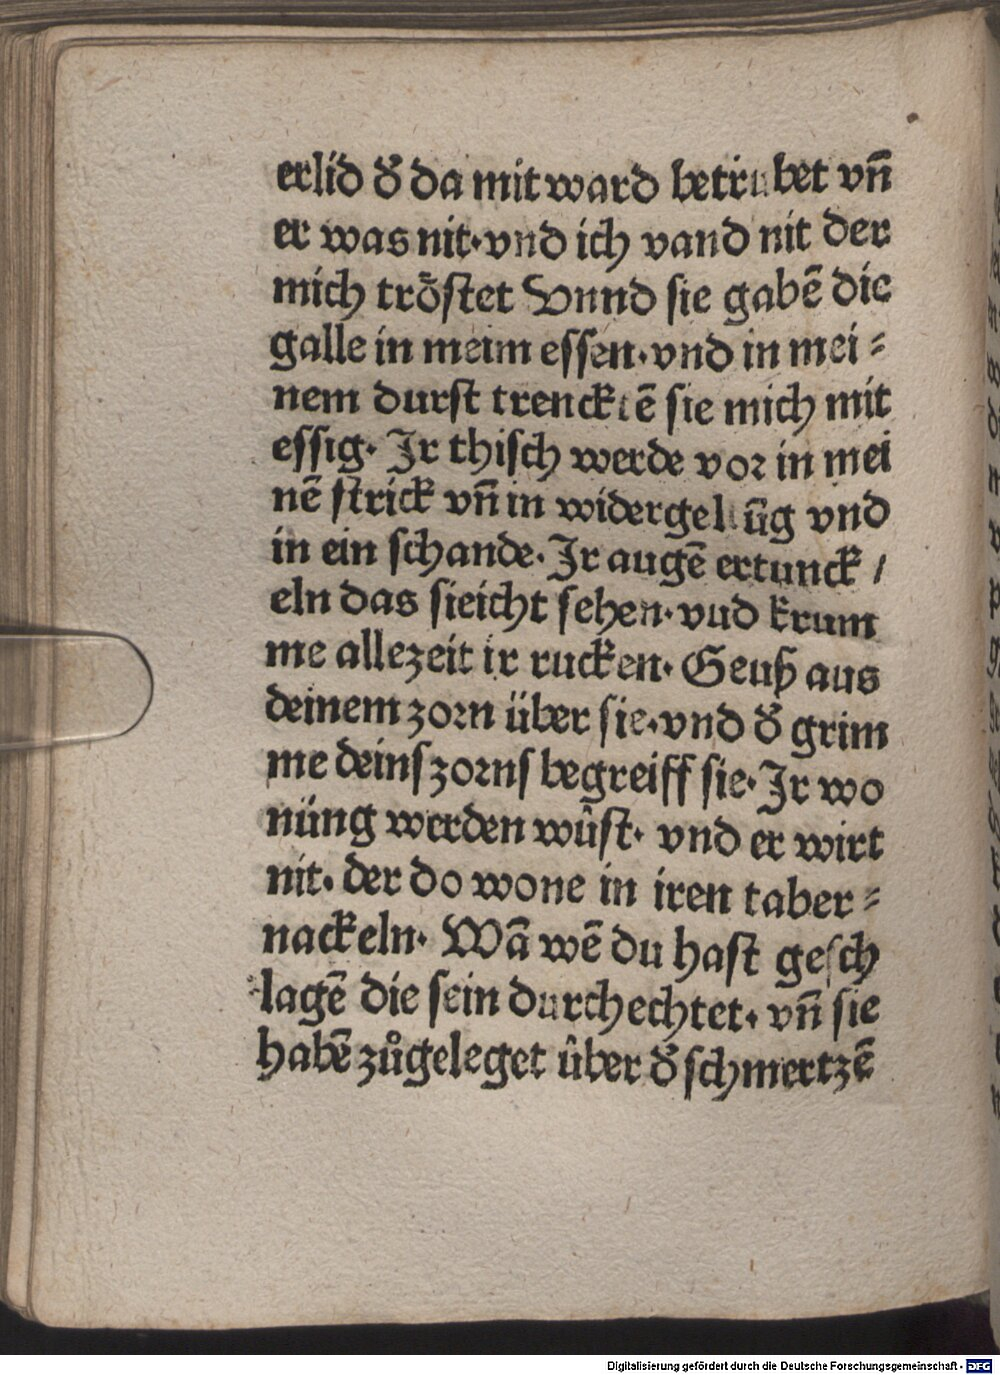 erlid d᷑ da mit ward betrubet vn̄
er was nit·vnd ich vand nit der
mich trőstet Vnnd sie gabē die
galle in meim essen·vnd in mei⸗
nem durst trencktē sie mich mit
essig· Jr thisch werde vor in mei
nē strick vn̄ in widergeltūg vnd
in ein schande·Jr augē ertunck/
eln das sieicht sehen·vud krum
me allezeit ir rucken· Geuß aus
deinem zorn über sie·vnd d᷑ grim
me deins zorns begreiff sie·Jr wo
nüng werden wûst· vnd er wirt
nit· der do wone in iren taber⸗
nackeln· Wā wē du hast gesch
lagē die sein durchechtet· vn̄ sie
habē zůgeleget ûber d᷑ schmertzē
Digitalisierung gefördert durch die Deutsche Forschungsgemeinschaft - DFG